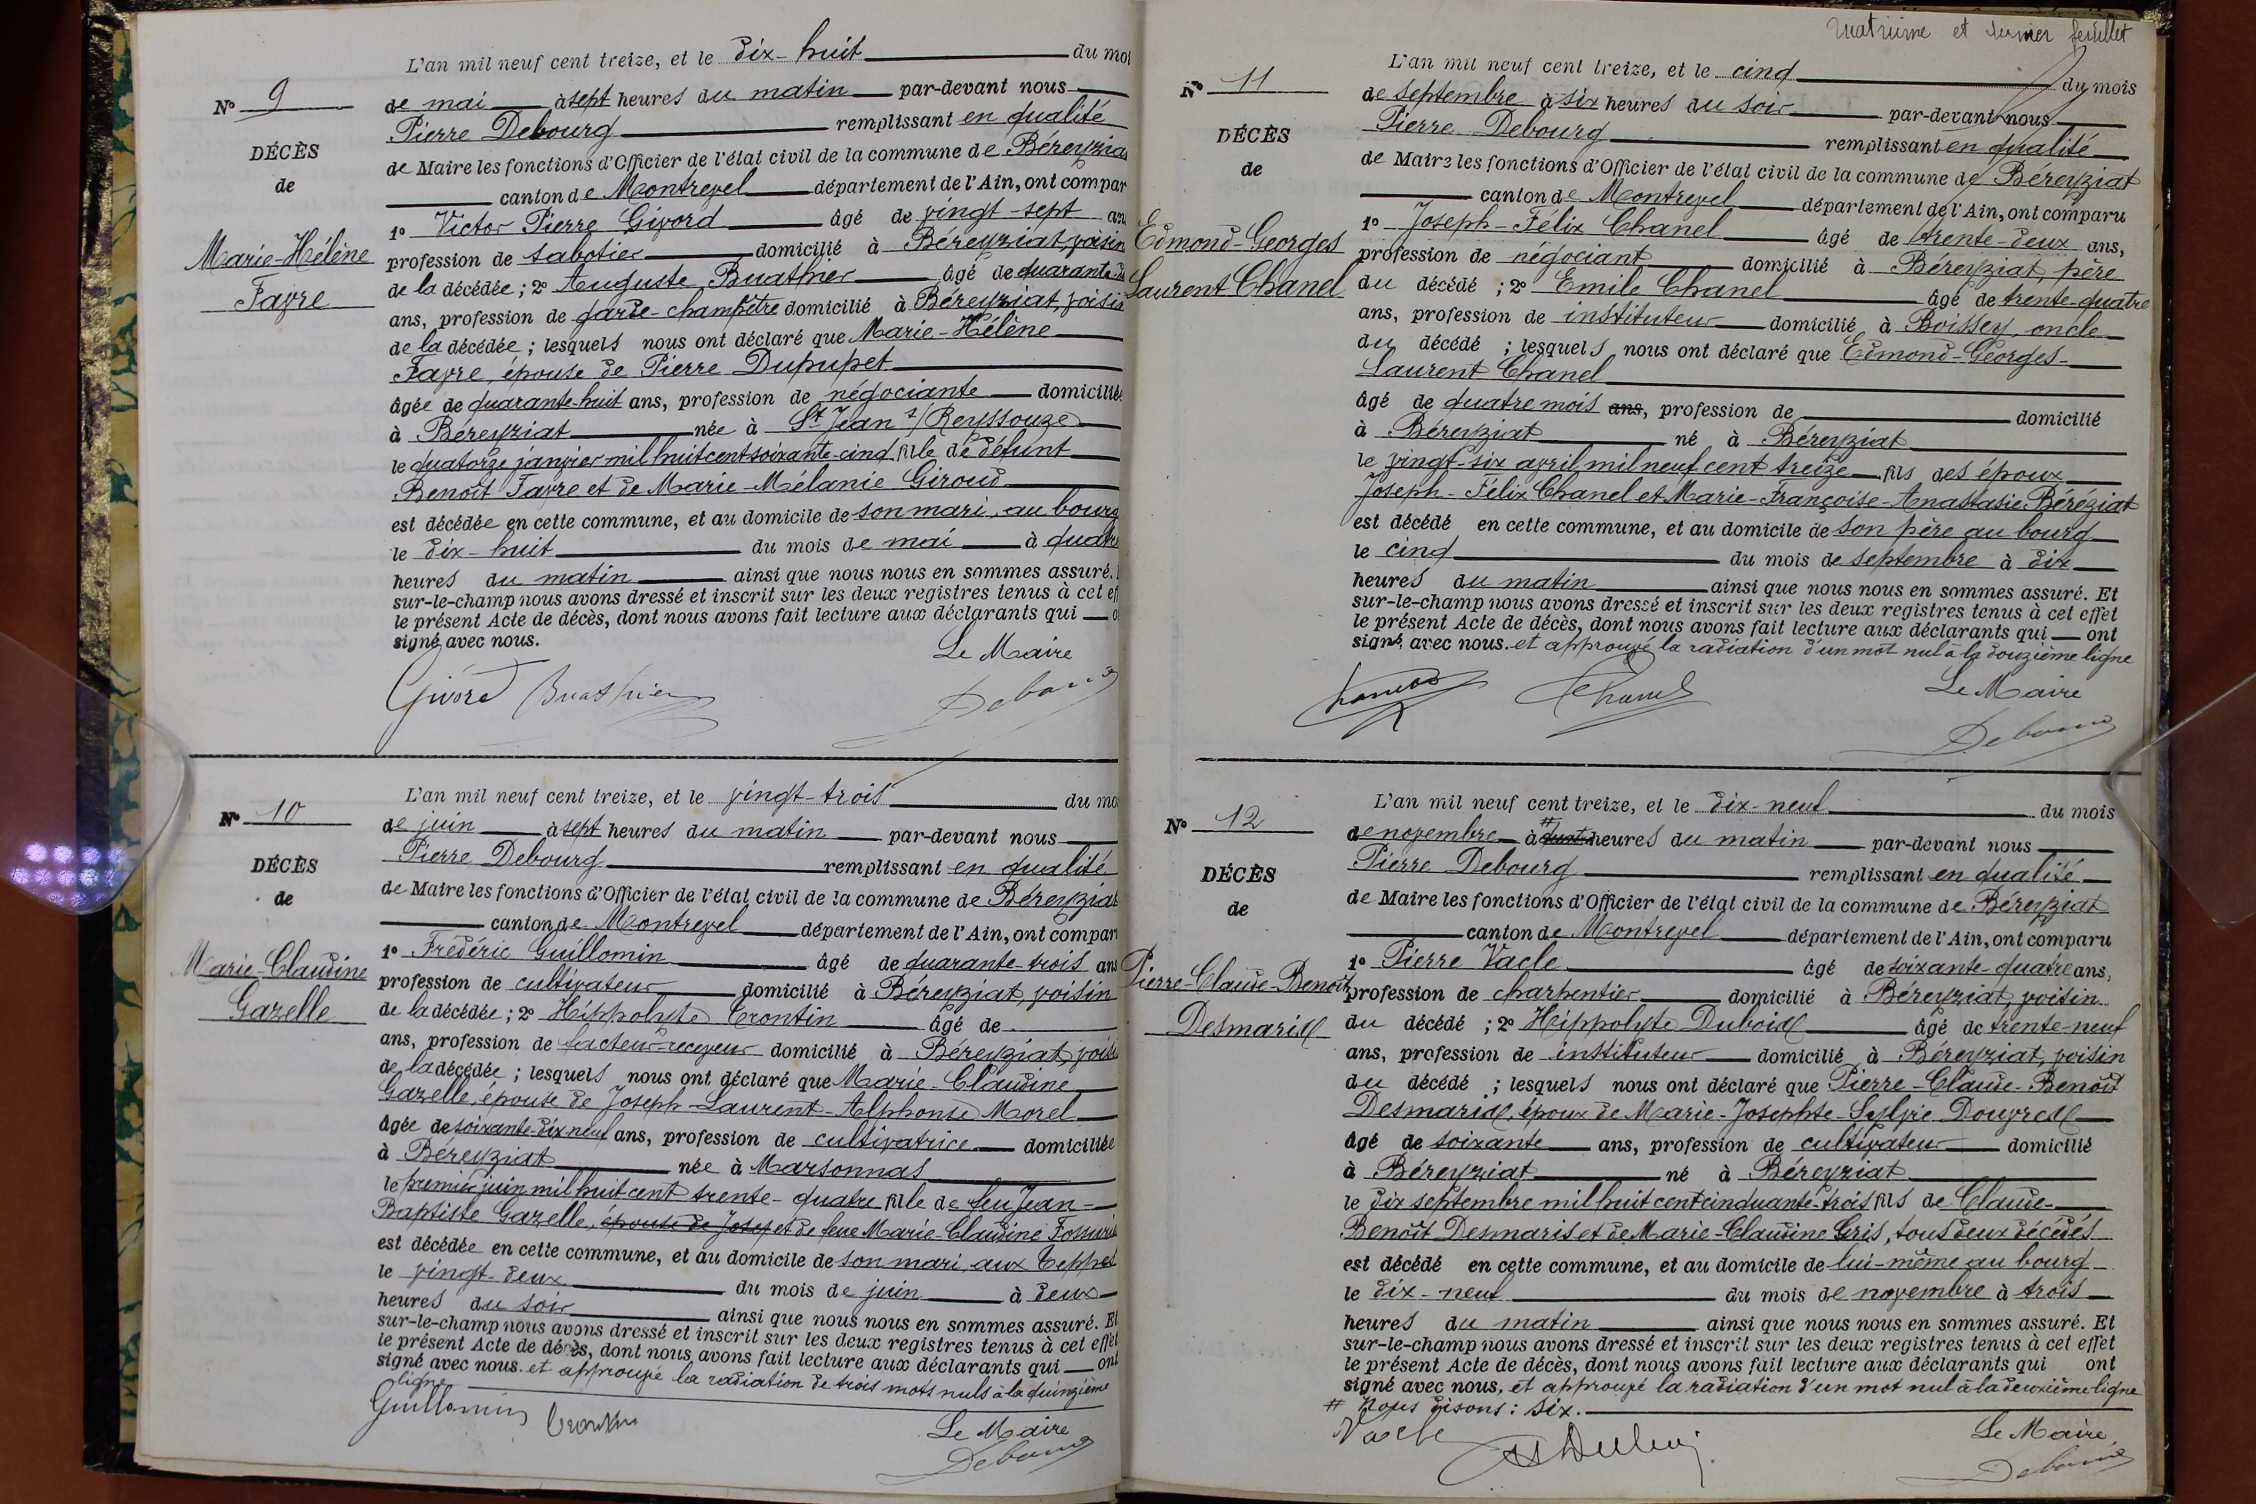 L'an mil neuf cent treize, et le dix-huit du moi
N° 9
de mai à sept heures du matin par-devant nous
Pierre Debourg remplissant en qualité
DÉCÈS
de Maire les fonctions d'Officier de l'état civil de la commune de Béreyzia
de
canton de Montrevel département de l'Ain, ont compar
1° Victor Pierre Givord âgé de vingt-sept an
Marie-Hélène
profession de sabotier domicilié à Béreyziat, voisin
Favre
de la décédée ; 2° Auguste Buathier âgé de quarante
ans, profession de garde-champêtre domicilié à Béreyziat, voisin
de la décédée ; lesquels nous ont déclaré que Marie-Hélène
Favre, épouse de Pierre Dupupet
âgée de quarante-huit ans, profession de négociante domiciliée
à Béreyziat née à St Jean s/ Reyssouze
le quatorze janvier mil huit cent soixante-cinq fille de défunt
Benoît Favre et de Marie-Mélanie Giroud
est décédée en cette commune, et au domicile de son mari, au bourg
le dix-huit du mois de mai à quatre
heures du matin ainsi que nous nous en sommes assuré.
sur-le-champ nous avons dressé et inscrit sur les deux registres tenus à cet ef
le présent Acte de décès, dont nous avons fait lecture aux déclarants qui o
signé avec nous.
Le Maire
Givord Buathier Debourg
L'an mil neuf cent treize, et le vingt-trois du mo
N° 10
de juin à sept heures du matin par-devant nous
Pierre Debourg remplissant en qualité
DÉCÈS
de Maire les fonctions d'Officier de l'état civil de la commune de Béreyziat
de
canton de Montrevel département de l'Ain, ont compar
1° Frédéric Guillomin âgé de quarante-trois ans
Marie-Claudine
profession de cultivateur domicilié à Béreyziat, voisin
Gazelle
de la décédée ; 2° Hippolyte Crontin âgé de
ans, profession de facteur-receveur domicilié à Béreyziat, voisi
de la décédée ; lesquels nous ont déclaré que Marie-Claudine
Gazelle, épouse de Joseph-Laurent-Alphonse Morel
âgée de soixante-dix neuf ans, profession de cultivatrice domiciliée
à Béreyziat née à Marsonnas
le premier juin mil huit cent trente-quatre fille de feu Jean-
Baptiste Gazelle, épouse de Josep et de feue Marie-Claudine
est décédée en cette commune, et au domicile de son mari, aux Teppes
le vingt-deux du mois de juin à deux
heures du soir ainsi que nous nous en sommes assuré. Et
sur-le-champ nous avons dressé et inscrit sur les deux registres tenus à cet effet
le présent Acte de décès, dont nous avons fait lecture aux déclarants qui ont
signé avec nous. et approuvé la radiation de trois mots nuls à la quinzième
ligne
Guillomin Crontin
Le Maire
Debourg
Quatrième et dernier feuillet
L'an mil neuf cent treize, et le cinq du mois
N° 11
de septembre à six heures du soir par-devant nous
Pierre Debourg remplissant en qualité
DÉCÈS
de Maire les fonctions d'Officier de l'état civil de la commune de Béreyziat
de
canton de Montrevel département de l'Ain, ont comparu
1° Joseph-Félix Chanel âgé de trente-deux ans,
Edmond-Georges
profession de négociant domicilié à Béreyziat, père
Laurent Chanel
du décédé ; 2° Emile Chanel âgé de trente-quatre
ans, profession de instituteur domicilié à Boissey, oncle
du décédé ; lesquels nous ont déclaré que Edmond-Georges-
Laurent Chanel
âgé de quatre mois ans, profession de domicilié
à Béreyziat né à Béreyziat
le vingt-six avril mil neuf cent treize fils des époux
Joseph-Félix Chanel et Marie-Françoise-Anastasie Béréziat
est décédé en cette commune, et au domicile de son père au bourg
le cinq du mois de septembre à dix
heures du matin ainsi que nous nous en sommes assuré. Et
sur-le-champ nous avons dressé et inscrit sur les deux registres tenus à cet effet
le présent Acte de décès, dont nous avons fait lecture aux déclarants qui ont
signé avec nous. et approuvé la radiation d'un mot nul à la douzième ligne
Le Maire
Chanel Chanel Debourg
L'an mil neuf cent treize, et le dix-neuf du mois
N° 12
de novembre à # heures du matin par-devant nous
Pierre Debourg remplissant en qualité
DÉCÈS
de Maire les fonctions d'Officier de l'état civil de la commune de Béreyziat
de
canton de Montrevel département de l'Ain, ont comparu
1° Pierre Vacle âgé de soixante-quatre ans,
Pierre-Claude-Benoît
profession de charpentier domicilié à Béreyziat, voisin
Desmaris
du décédé ; 2° Hippolyte Dubois âgé de trente-neuf
ans, profession de instituteur domicilié à Béreyziat, voisin
du décédé ; lesquels nous ont déclaré que Pierre-Claude-Benoît
Desmaris, époux de Marie-Josephte-Sylvie Douvres
âgé de soixante ans, profession de cultivateur domicilié
à Béreyziat né à Béreyziat
le dix septembre mil huit cent cinquante-trois fils de Claude-
Benoît Desmaris et de Marie-Claudine Gris, tous deux décédés
est décédé en cette commune, et au domicile de lui-même au bourg
le dix-neuf du mois de novembre à trois
heures du matin ainsi que nous nous en sommes assuré. Et
sur-le-champ nous avons dressé et inscrit sur les deux registres tenus à cet effet
le présent Acte de décès, dont nous avons fait lecture aux déclarants qui ont
signé avec nous, et approuvé la radiation d'un mot nul à la deuxième ligne
# nous disons : six.
Vacle
Le Maire
Debourg